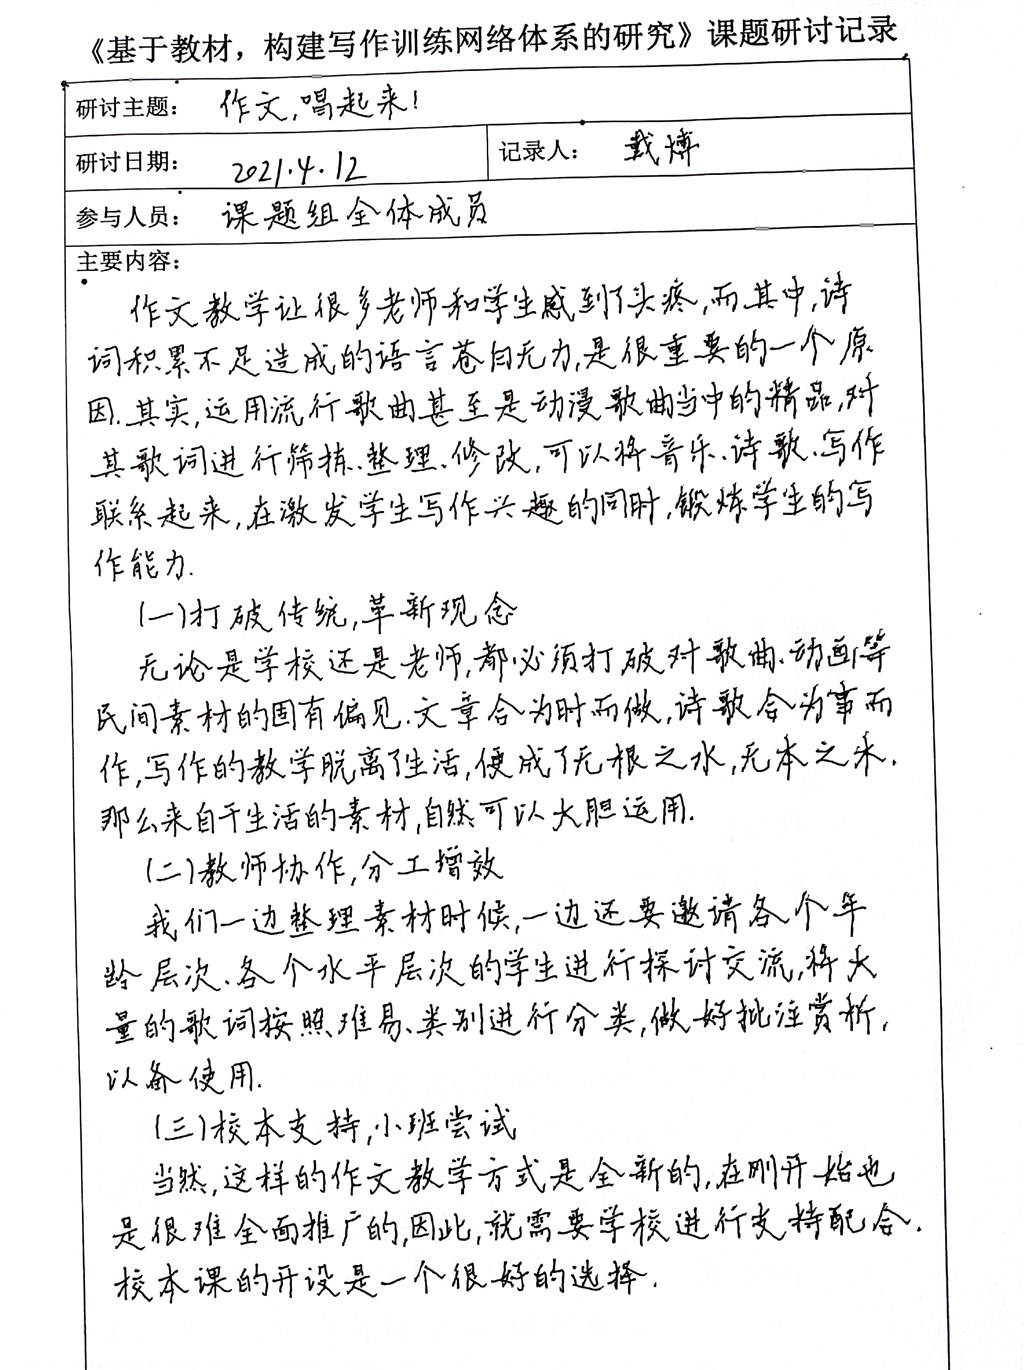 《基于教材，构建写作训练网络体系的研究》课题研讨记录
研讨主题： 作文，唱起来！
研讨日期： 2021.4.12 记录人： 戴
参与人员： 课题组全体成员
主要内容：
作文教学让很多老师和学生感到了头疼，而其中，诗
词积累不足造成的语言苍白无力，是很重要的一个原
因.其实，运用流行歌曲甚至是动漫歌曲当中的精品，对
其歌词进行筛拣、整理、修改，可以将音乐、诗歌、写作
联系起来，在激发学生写作兴趣的同时，锻炼学生的写
作能力.
(一)打破传统，革新观念
无论是学校还是老师，都必须打破对歌曲、动画等
民间素材的固有偏见.文章合为时而做，诗歌合为事而
作，写作的教学脱离了生活，便成了无根之水，无本之木.
那么来自于生活的素材，自然可以大胆运用.
(二)教师协作，分工增效
我们一边整理素材时候，一边还要邀请各个年
龄层次、各个水平层次的学生进行探讨交流，将大
量的歌词按照难易、类别进行分类，做好批注赏析，
以备使用.
(三)校本支持，小班尝试
当然，这样的作文教学方式是全新的，在刚开始也
是很难全面推广的，因此，就需要学校进行支持配合.
校本课的开设是一个很好的选择.